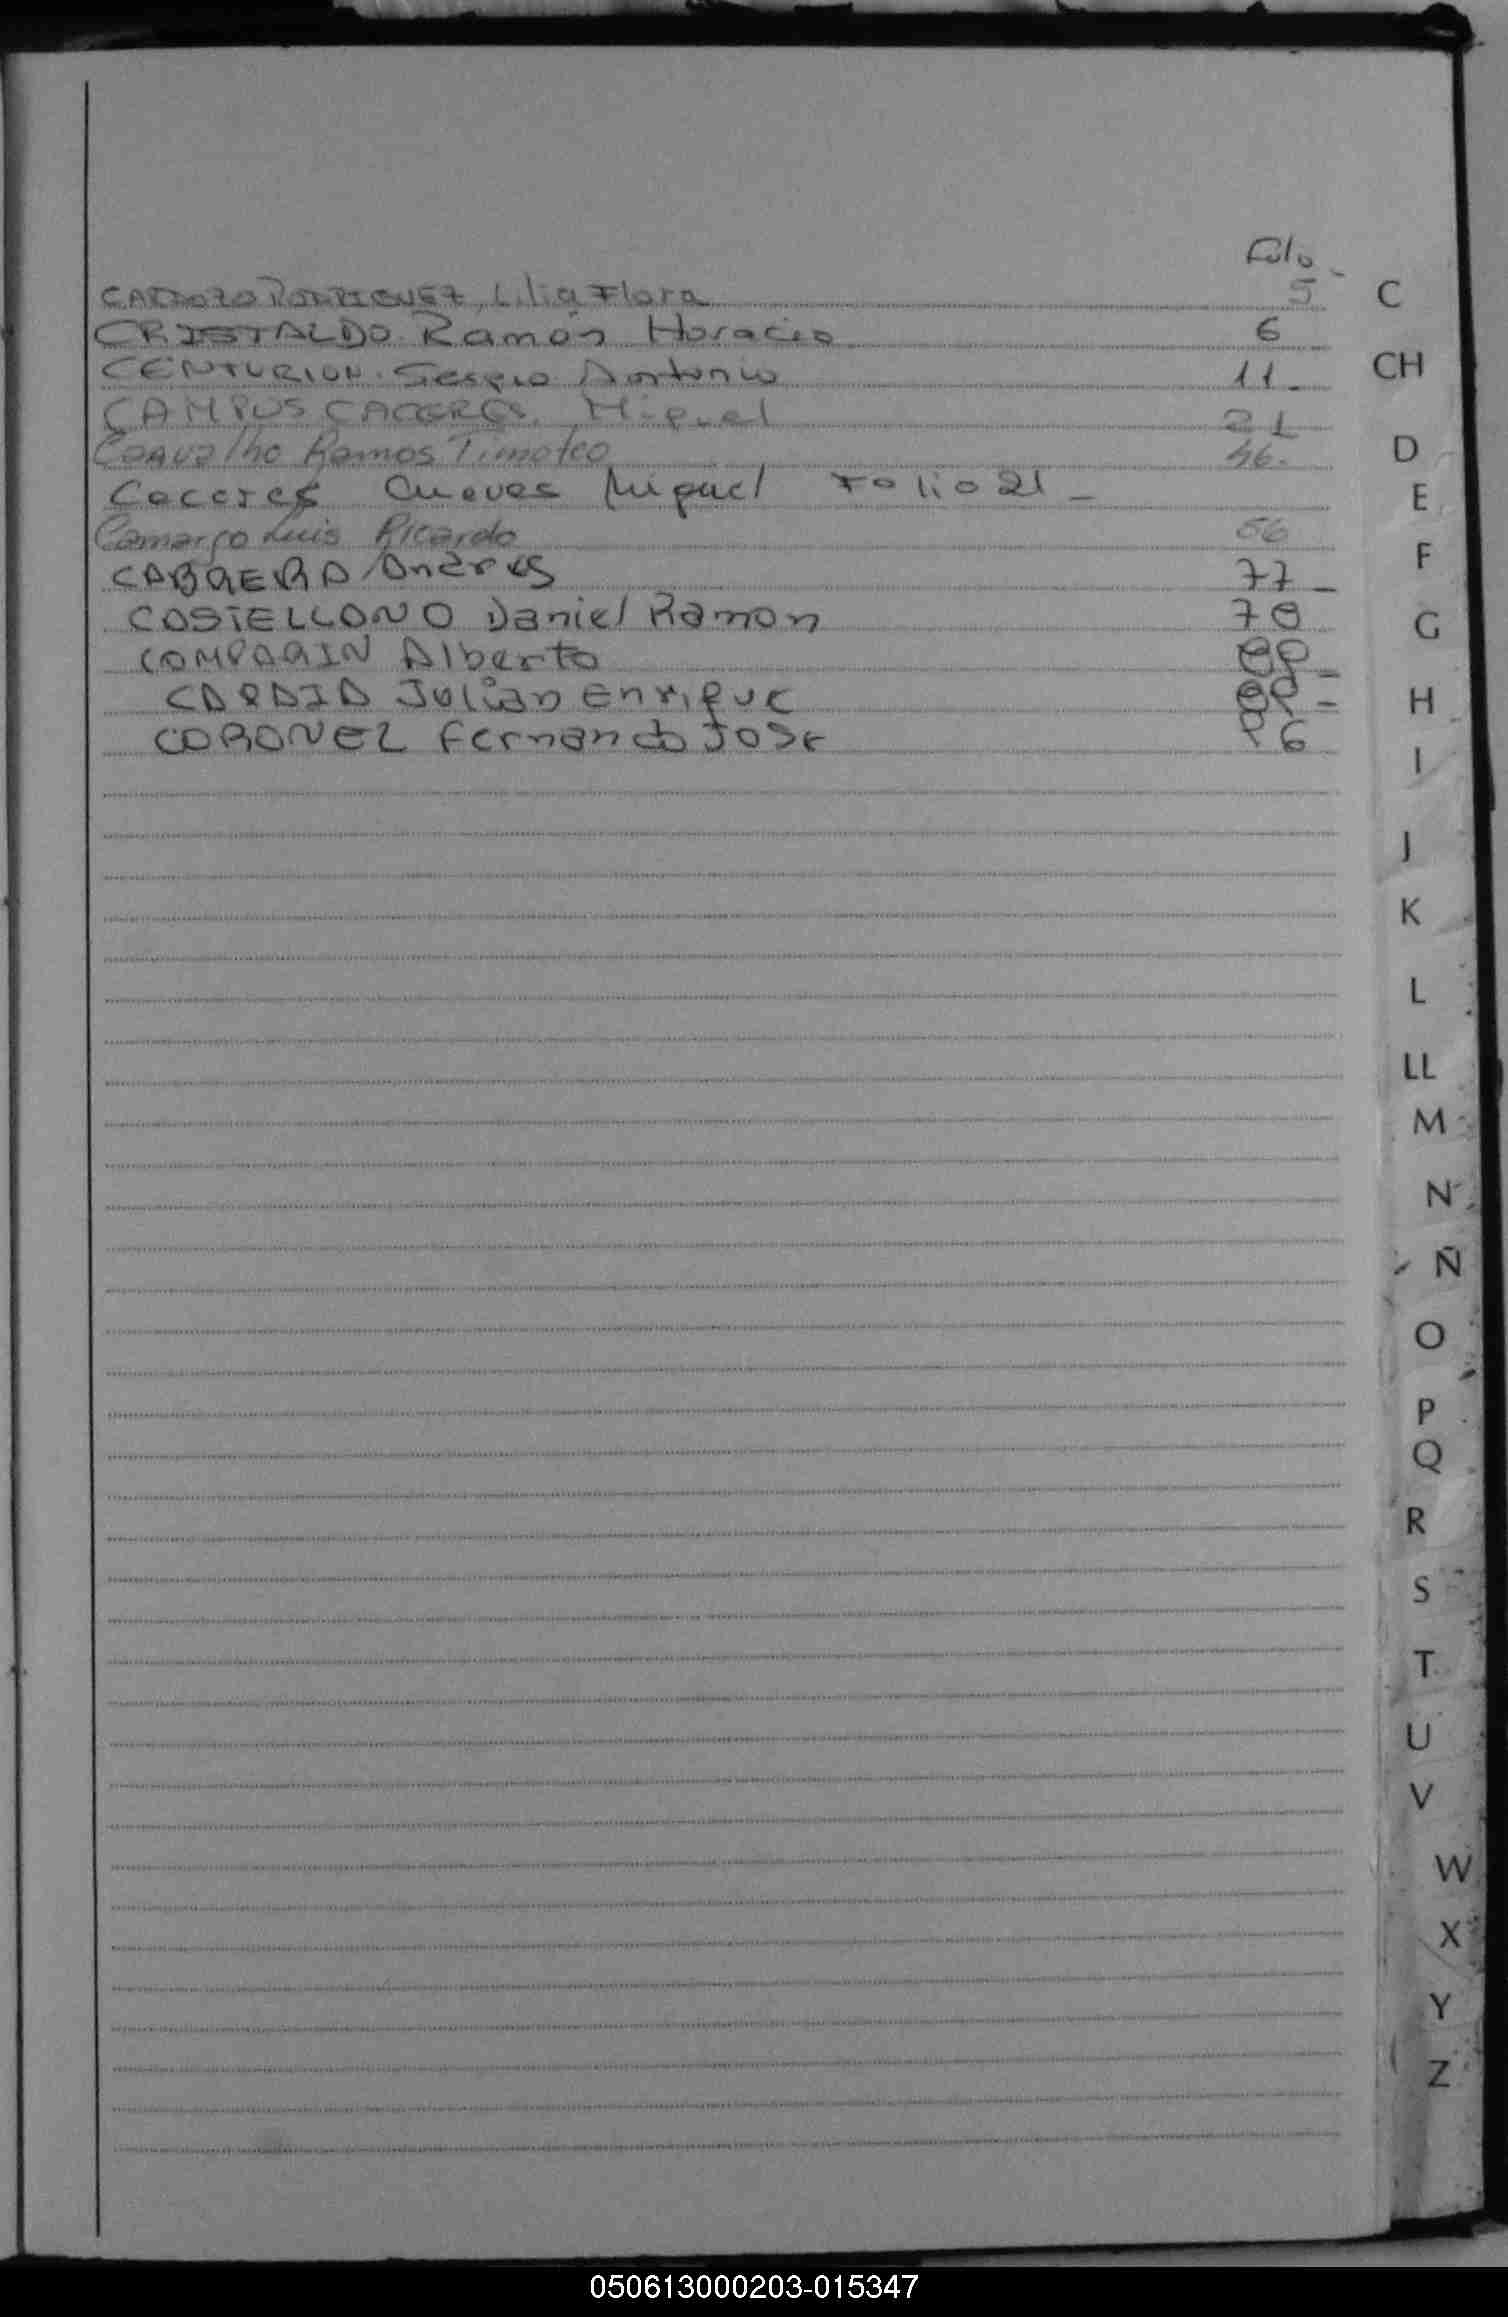 Folio
CARDOZO RODRIGUEZ, Lilia Flora 5 C
CRISTALDO Ramón Horacio 6
CENTURION. Sergio Antonio 11. CH
CAMPUS CACERES, Miguel 21
Carvalho Ramos Timoteo 46. D
Caceres Cuevas Miguel Folio 21 - E
Camargo Luis Ricardo 56
CABRERA Andres 77 - F
CASTELLANO Daniel Ramon 78 G
COMPARIN Alberto
Julian Enrique H
CORONEL Fernando Jose 96
I
J
K
L
LL
M
N
Ñ
O
P
Q
R
S
T
U
V
W
X
Y
Z
050613000203-015347